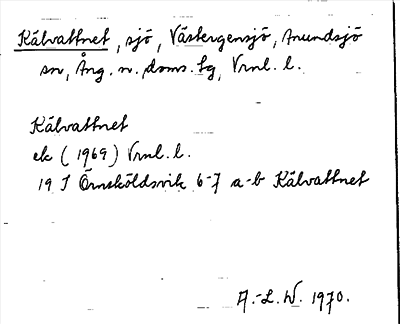 Kälvattnet, sjö, Västergensjö, Anundsjö
sn, Ång. n. doms. tg, Vrnl. l.
Kälvattnet
ek (1969) Vrnl. l.
19 J Örnsköldsvik 6-7 a-b Kälvattnet
A.-L. W. 1970.